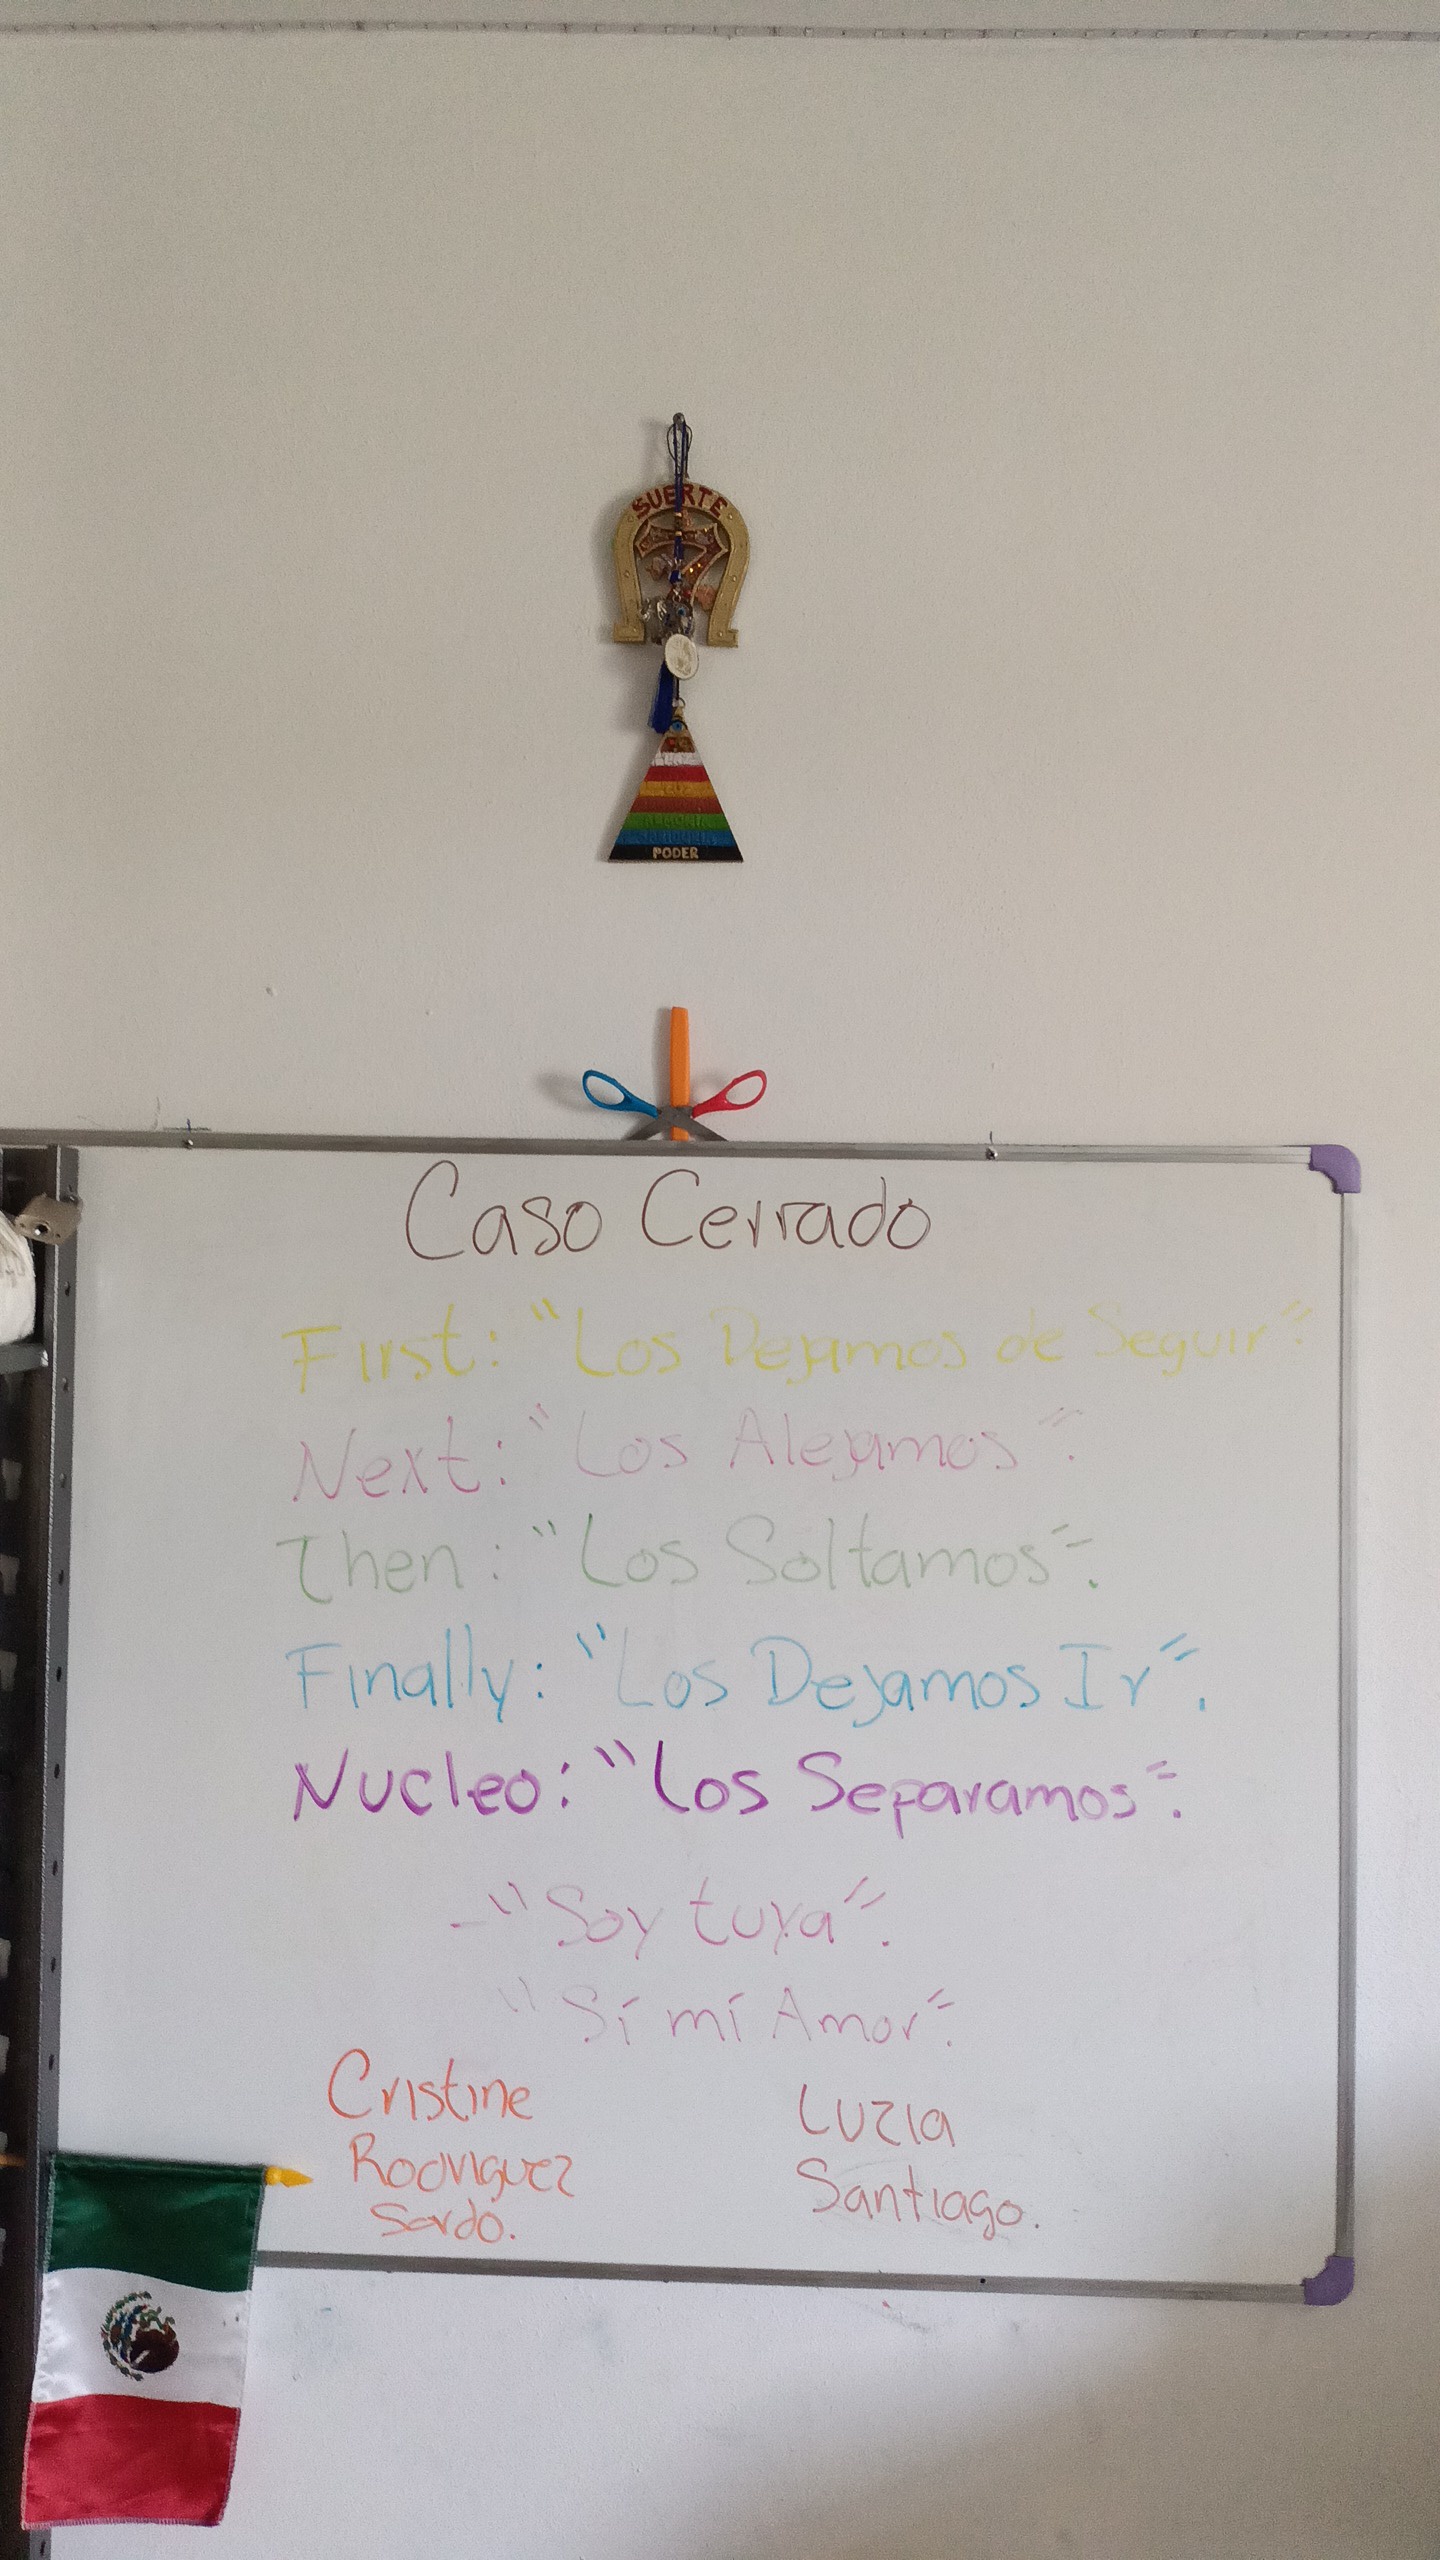 SUERTE
7
PODER
Caso Cerrado
First: "Los Dejamos de Seguir".
Next: "Los Alejamos".
Then: "Los Soltamos".
Finally: "Los Dejamos Ir".
Nucleo: "Los Separamos".
-"Soy tuya".
"Sí mí Amor".
Cristine
Rodriguez
Sordo.
Luzia
Santiago.